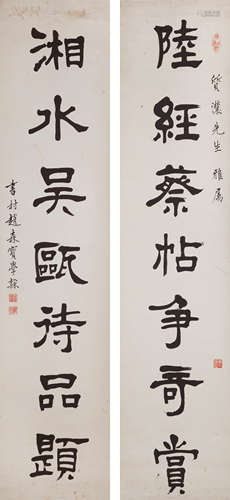 質先生 雅屬
陸經蔡帖争奇賞
湘水吴甌待品題
書村趙森寶學隸